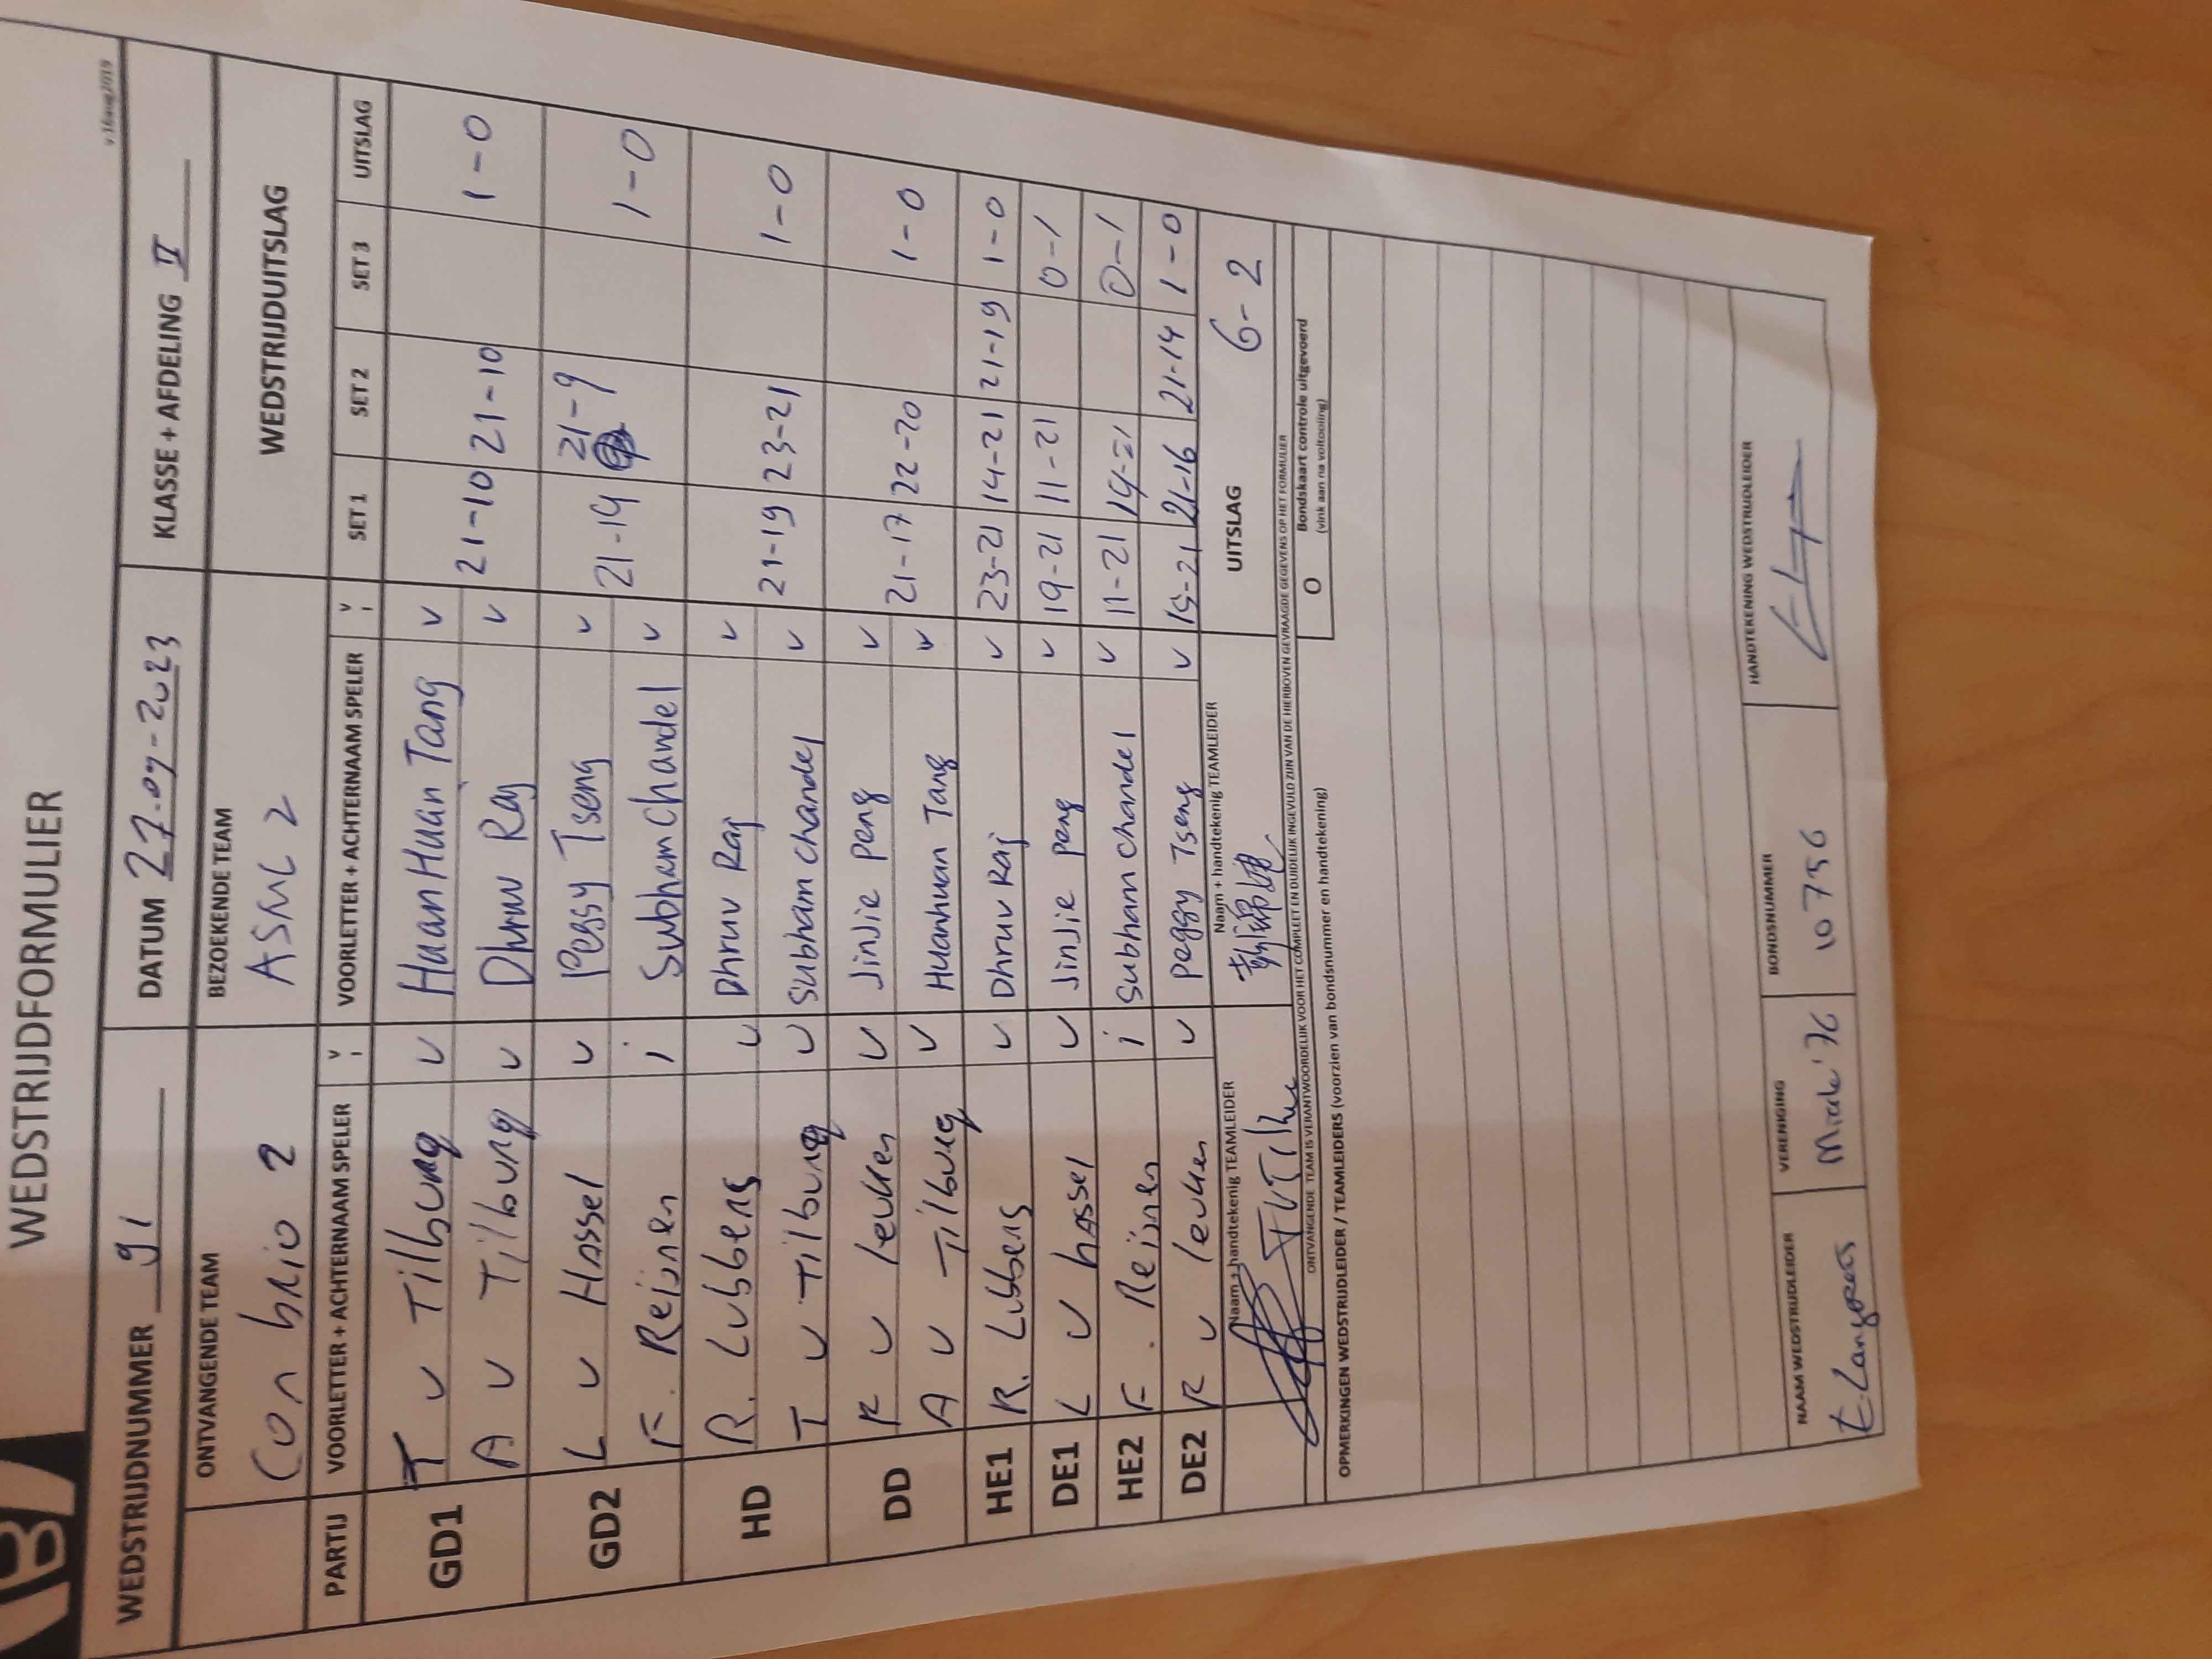 WEDSTRIJDFORMULIER
v.18aug2019
WEDSTRIJDNUMMER 91 DATUM 27-09-2023 KLASSE + AFDELING II
ONTVANGENDE TEAM BEZOEKENDE TEAM WEDSTRIJDUITSLAG
Con brio 2 ASML 2
PARTIJ VOORLETTER + ACHTERNAAM SPELER V I VOORLETTER + ACHTERNAAM SPELER V I SET 1 SET 2 SET 3 UITSLAG
GD1 T v Tilburg v HuanHuan Tang v 21-10 21-10 1-0
A v Tilburg v Dhruv Raj v
GD2 L v Hassel v Peggy Tseng v 21-14 21-9 1-0
F. Reijnen i Subham Chandel v
HD R. Lubbers v Dhruv Raj v 21-19 23-21 1-0
T v Tilburg v Subham Chandel v
DD R v leuken v JinJie Peng v 21-17 22-20 1-0
A v Tilburg v Huanhuan Tang v
HE1 R. Lubbers v Dhruv Raj v 23-21 14-21 21-19 1-0
DE1 L v hassel v Jinjie peng v 19-21 11-21 0-1
HE2 F. Reijnen i Subham Chandel v 11-21 14-21 0-1
DE2 R v leuken v Peggy Tseng v 15-21 21-16 21-14 1-0
Naam + handtekenig TEAMLEIDER Naam + handtekenig TEAMLEIDER UITSLAG 6-2
ONTVANGENDE TEAM IS VERANTWOORDELIJK VOOR HET COMPLEET EN DUIDELIJK INGEVULD ZIJN VAN DE HIERBOVEN GEVRAAGDE GEGEVENS OP HET FORMULIER
OPMERKINGEN WEDSTRIJDLEIDER / TEAMLEIDERS (voorzien van bondsnummer en handtekening)
O Bondskaart controle uitgevoerd
(vink aan na voltooiing)
NAAM WEDSTRIJDLEIDER VERENIGING BONDSNUMMER HANDTEKENING WEDSTRIJDLEIDER
10756